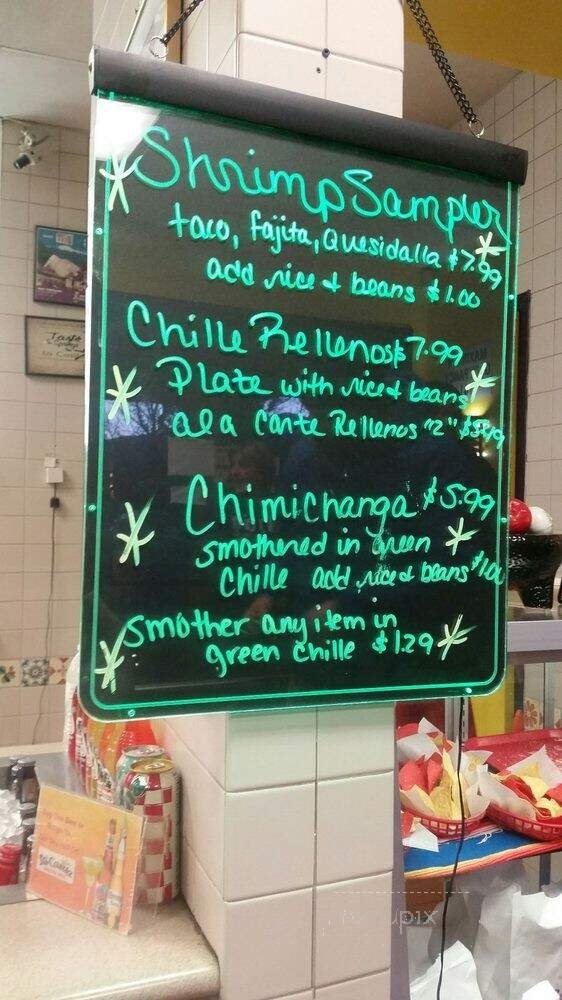 Shrimp Sampler
taco, fajita, Quesidalla $7.99
add rice & beans $1.00
Chille Rellenos $7.99
Plate with rice & beans
ala Carte Rellenos "2"
Chimichanga $5.99
smothered in green
Chille add rice & beans $1.00
smother any item in
green chille $1.29